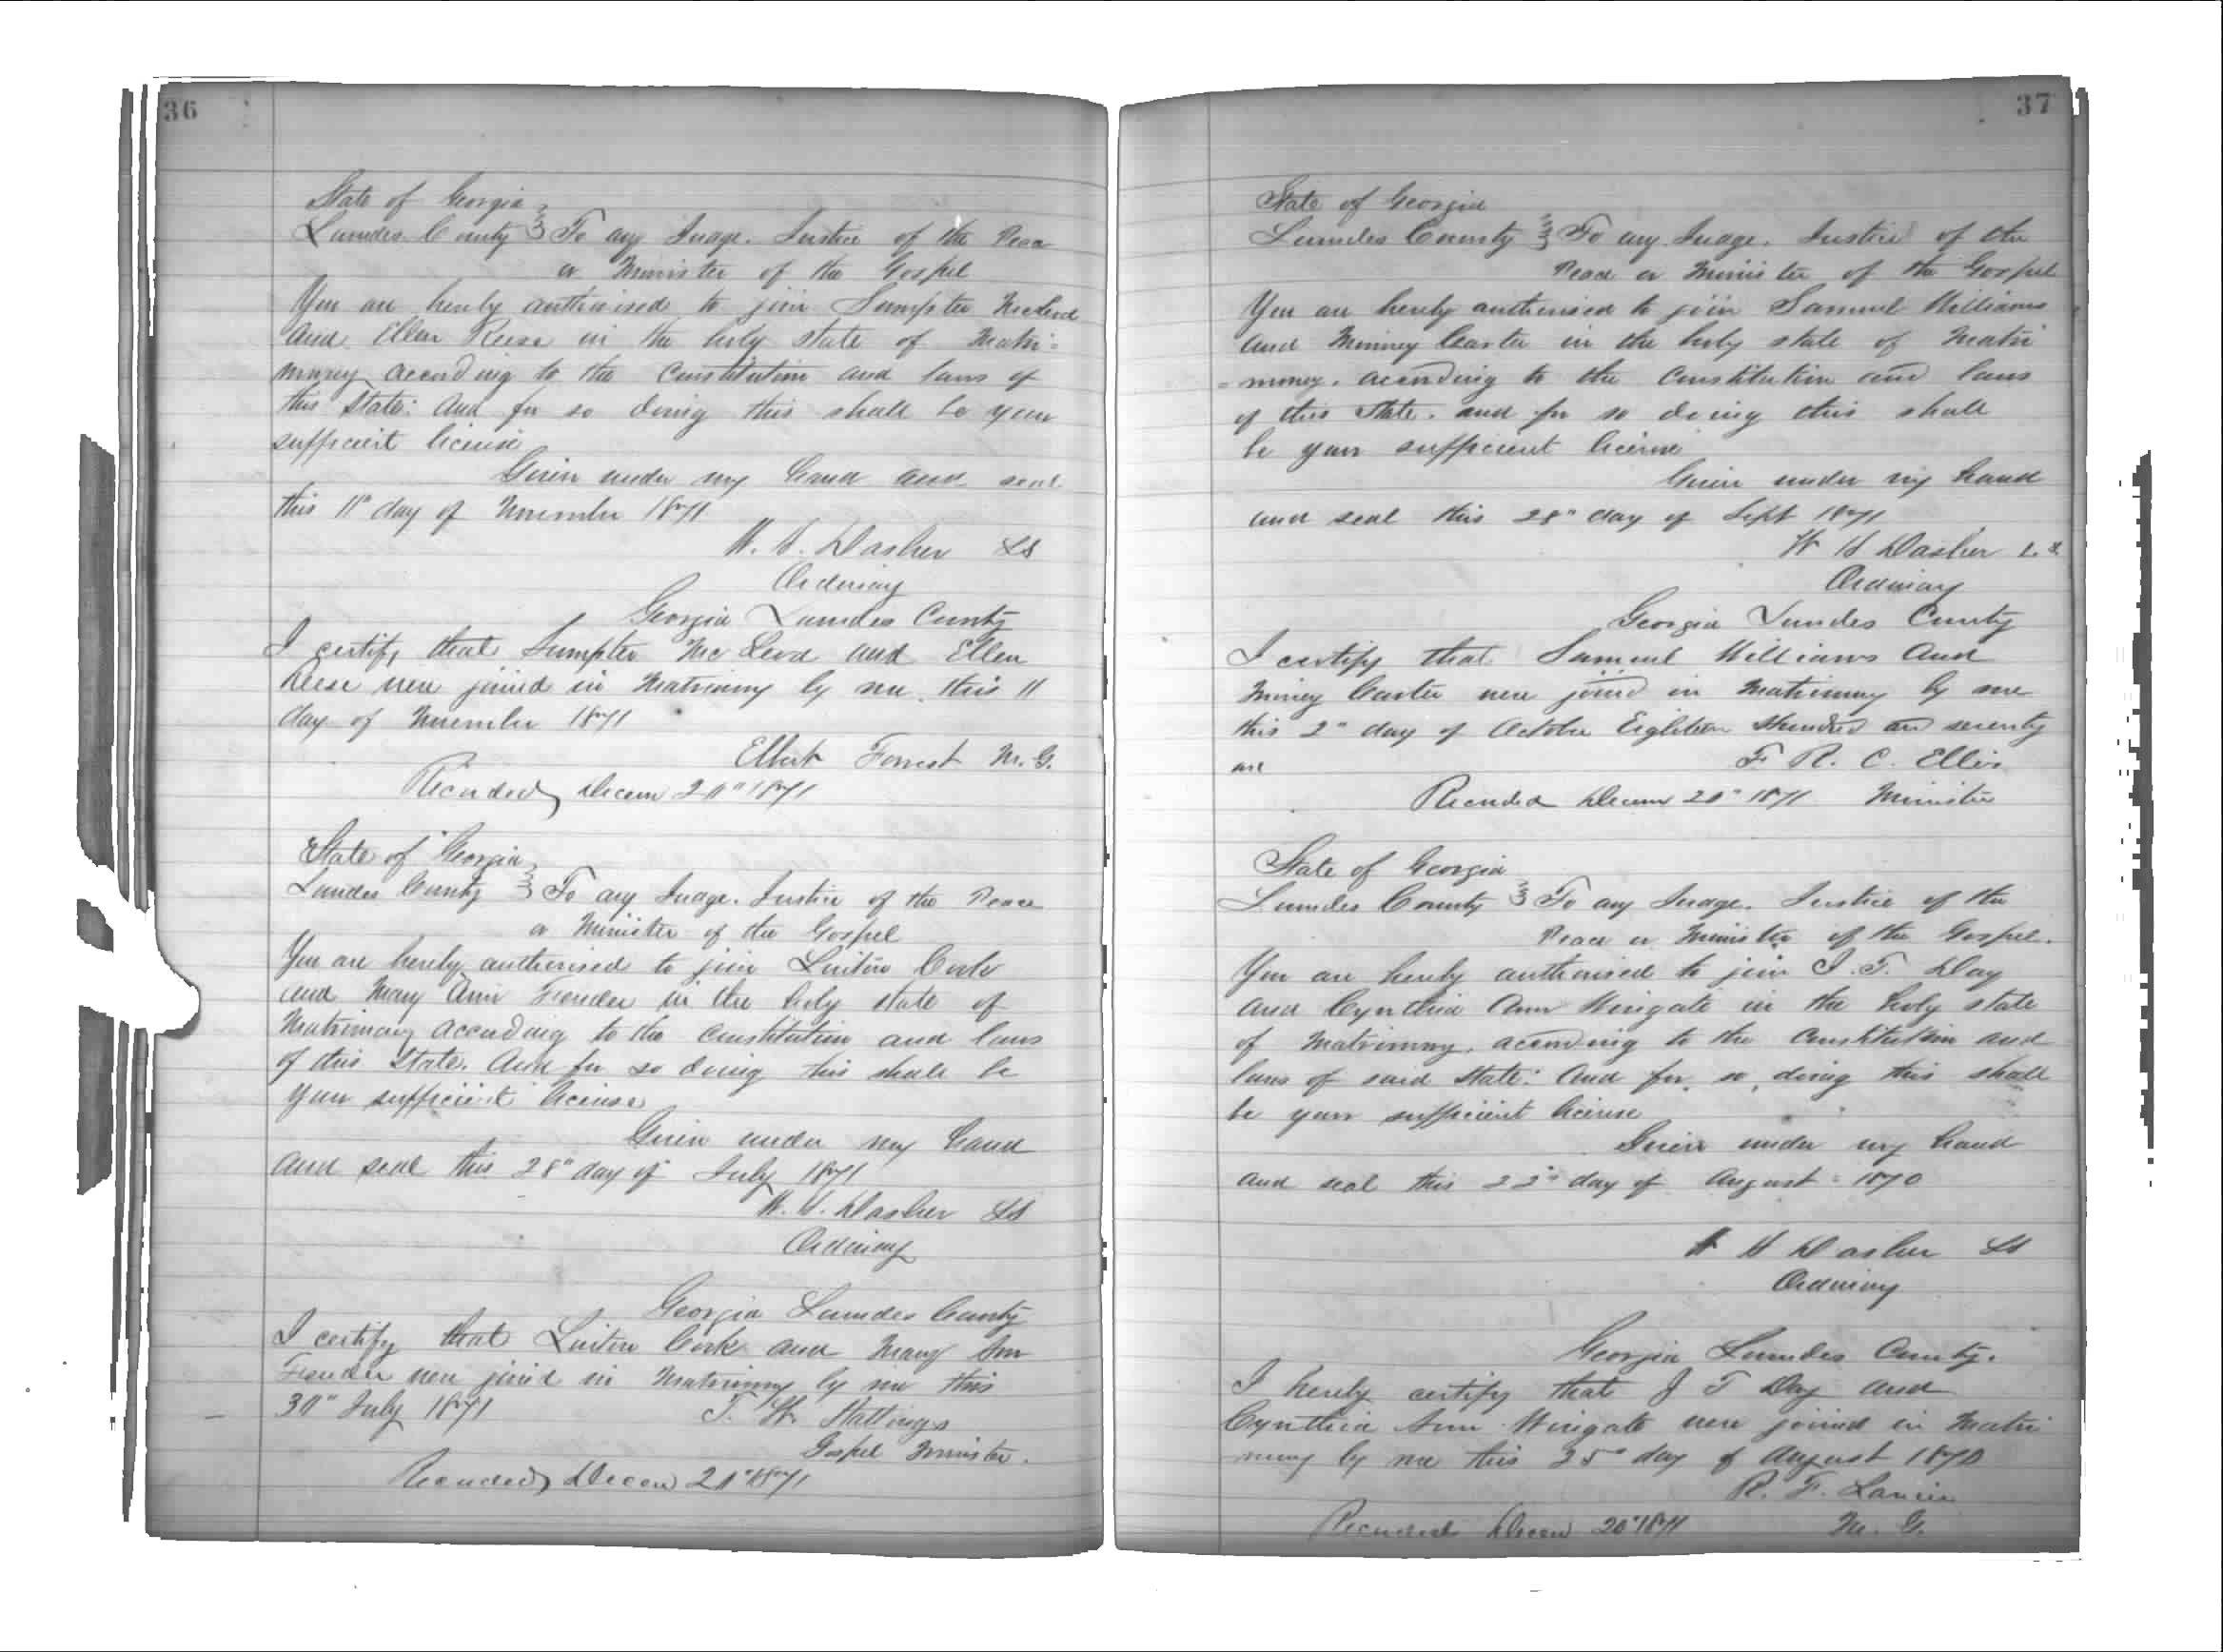 36
State of Georgia
Lowndes County } To any Judge. Justice of the Peace
or Minister of the Gospel
You are hereby authorised to join Sumpter McLeod
and Ellen Reese in the holy state of Matri-
mony according to the Constitution and laws of
this State: And for so doing this shall be your
sufficient license
Given under my hand and seal
this 11th day of November 1871
W. H. Dasher LS
Ordinary
Georgia Lowndes County
I certify that Sumpter McLeod and Ellen
Reese were joined in Matrimony by me this 11
day of November 1871
Elbert Forrest M. G.
Recorded Decem 20th 1871
State of Georgia
Lowndes County } To any Judge. Justice of the Peace
or Minister of the Gospel
You are hereby authorised to join
and Mary Ann Fender in the holy state of
Matrimony according to the constitution and laws
of this State. And for so doing this shall be
your sufficient license
Given under my hand
and seal this 28th day of July 1871
W. H. Dasher LS
Ordinary
Georgia Lowndes County
I certify that and Mary Ann
Fender were joined in Matrimony by me this
30th July 1871 T. W. Stallings
Gospel Minister.
Recorded Decem 20th 1871
37
State of Georgia
Lowndes County } To any Judge. Justice of the
Peace or Minister of the Gospel
You are hereby authorised to join Samuel Williams
and Minney Carter in the holy state of Matri
=mony. according to the Constitution and laws
of this State. and for so doing this shall
be your sufficient license
Given under my hand
and seal this 28th day of Sept 1871
W H Dasher L.S.
Ordinary
Georgia Lowndes County
I certify that Samuel Williams and
Minney Carter were joined in Matrimony by me
this 2nd day of October Eighteen Hundred and seventy
one F. R. C. Ellis
Recorded Decem 20th 1871 Minister
State of Georgia
Lowndes County } To any Judge. Justice of the
Peace or Minister of the Gospel.
You are hereby authorised to join J. T. Day
and Cynthia Ann Wingate in the holy state
of Matrimony. according to the Constitution and
laws of said State: And for so doing this shall
be your sufficient license
Given under my hand
and seal this 22nd day of August 1870
W H Dasher LS
Ordinary
Georgia Lowndes County.
I hereby certify that J T Day and
Cynthia Ann Wingate were joined in Matri
mony by me this 25th day of August 1870
R. F. Lanier
Recorded Decem 20th 1871 M. G.